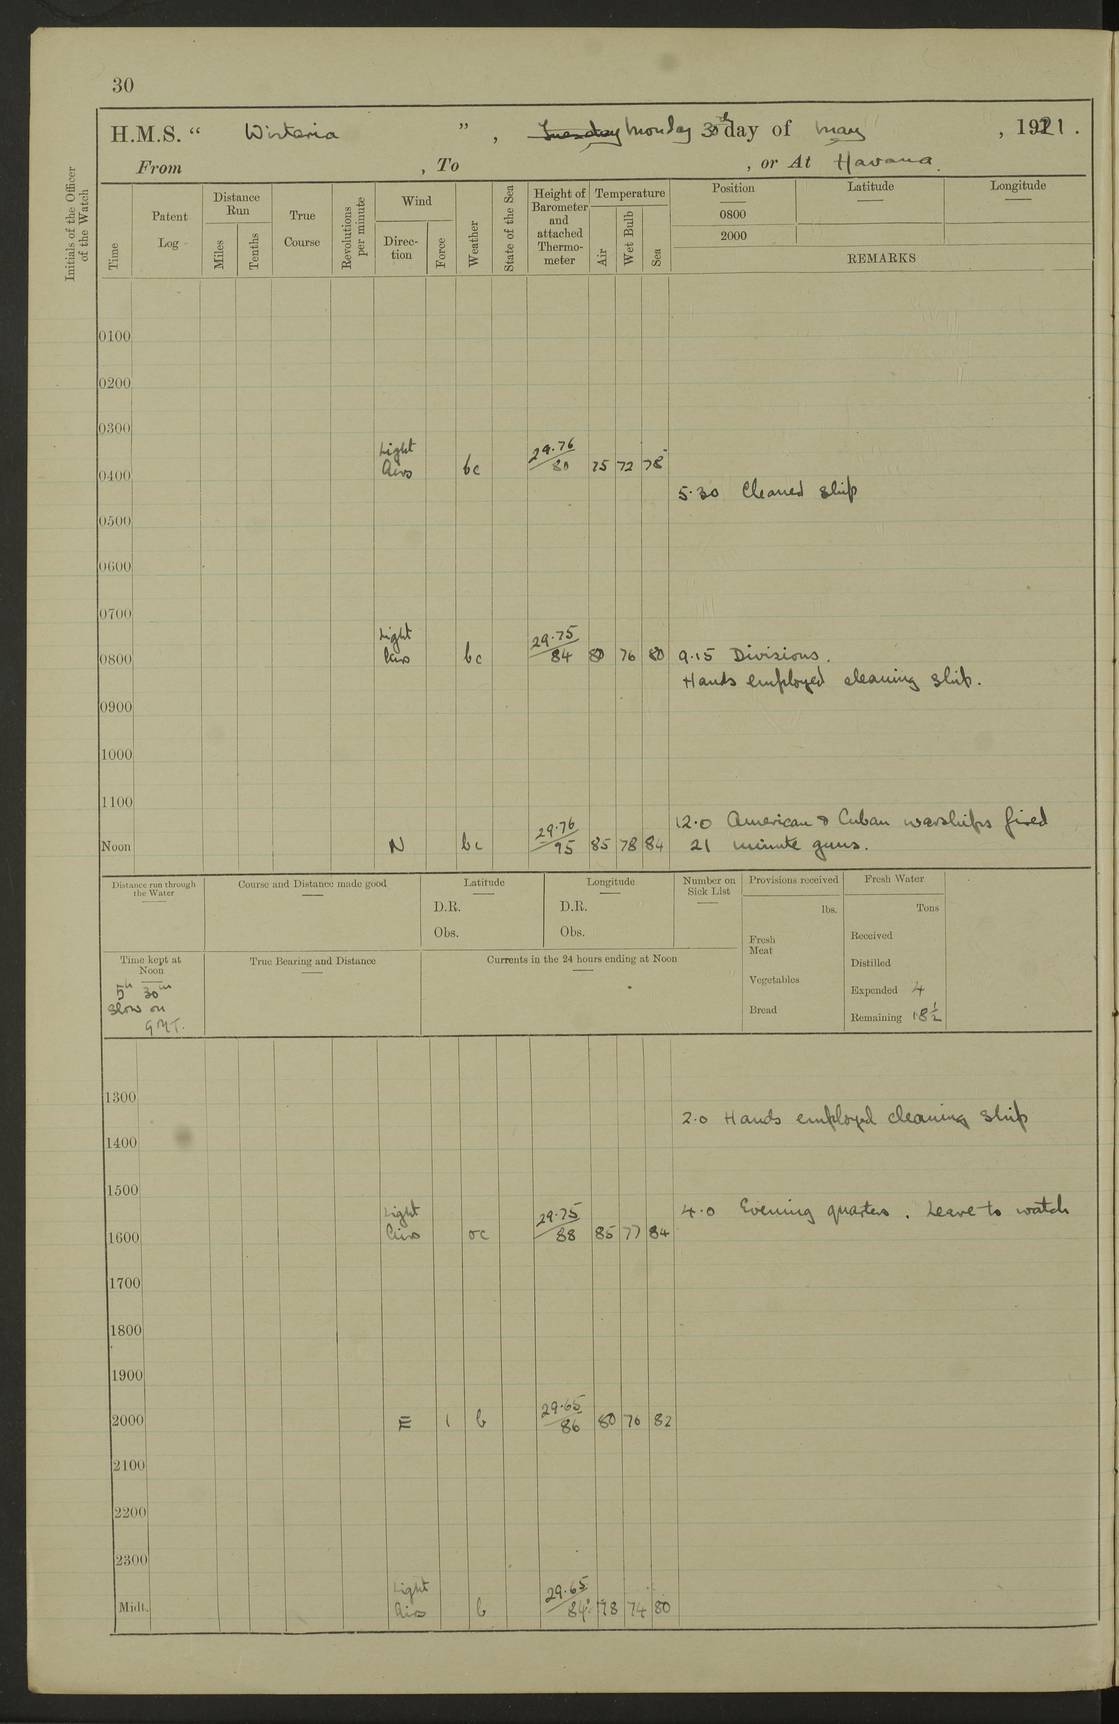 30
H.M.S. “ Wisteria ” , Tuesday Monday 30th day of May , 1921 .
From , To , or At Havana.
Initials of the Officer of the Watch
Time
Patent Log
Distance Run
Miles
Tenths
True Course
Revolutions per minute
Wind
Direc- tion
Force
Weather
State of the Sea
Height of Barometer and attached Thermo- meter
Temperature
Air
Wet Bulb
Sea
Position Latitude Longitude
0800
2000
REMARKS
0100
0200
0300
Light 29.76
0400 Airs bc 80 75 72 78
5.30 Cleaned ship
0500
0600
0700
Light 29.75
0800 Airs bc 84 80 76 80 9.15 Divisions.
Hands employed cleaning ship.
0900
1000
1100
29.76 12.0 American & Cuban warships fired
Noon N bc 95 85 78 84 21 minute guns.
Distance run through the Water
Course and Distance made good
Latitude
D.R.
Obs.
Longitude
D.R.
Obs.
Number on Sick List
Provisions received
lbs.
Fresh Meat
Vegetables
Bread
Fresh Water
Tons
Received
Distilled
Expended 4
Remaining 18½
Time kept at Noon
5h 30m
Slow on
G.M.T.
True Bearing and Distance
Currents in the 24 hours ending at Noon
1300
2.0 Hands employed cleaning ship
1400
1500
Light 29.75 4.0 Evening quarters. Leave to watch
1600 Airs oc 88 85 77 84
1700
1800
1900
29.65
2000 E 1 b 86 80 76 82
2100
2200
2300
Light 29.65
Midt. Airs b 84 78 74 80